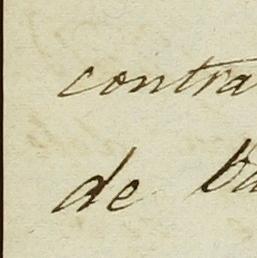 contra
de Va